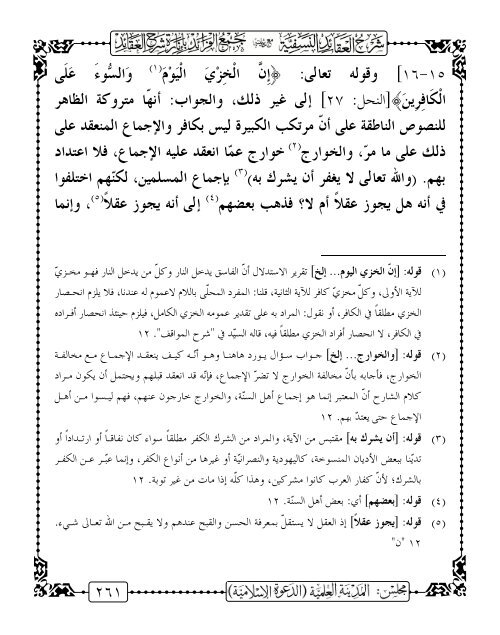 شرح العقائد النسفية مع حاشية جمع الفرائد بإنارة شرح العقائد
١٥-١٦] وقوله تعالى: ﴿إِنَّ الْخِزْيَ الْيَوْمَ(١) وَالسُّوءَ عَلَى
الْكَافِرِينَ﴾[النحل: ٢٧] إلى غير ذلك، والجواب: أنهّا متروكة الظاهر
للنصوص الناطقة على أنّ مرتكب الكبيرة ليس بكافر والإجماع المنعقد على
ذلك على ما مرّ، والخوارج(٢) خوارج عمّا انعقد عليه الإجماع، فلا اعتداد
بهم. (والله تعالى لا يغفر أن يشرك به)(٣) بإجماع المسلمين، لكنّهم اختلفوا
في أنه هل يجوز عقلاً أم لا؟ فذهب بعضهم(٤) إلى أنه يجوز عقلاً(٥)، وإنما
(١) قوله: [إنّ الخزي اليوم... إلخ] تقرير الاستدلال أنّ الفاسق يدخل النار وكلّ من يدخل النار فهو مخزيّ
للآية الأولى، وكلّ مخزيّ كافر للآية الثانية، قلنا: المفرد المحلّى باللام لاعموم له عندنا، فلا يلزم انحصار
الخزي مطلقاً في الكافر، أو نقول: المراد به على تقدير عمومه الخزي الكامل، فيلزم حينئذ انحصار أفراده
في الكافر، لا انحصار أفراد الخزي مطلقاً فيه، قاله السيّد في "شرح المواقف". ١٢
(٢) قوله: [والخوارج... إلخ] جواب سؤال يورد هاهنا وهو أنه كيف ينعقد الإجماع مع مخالفة
الخوارج، فأجابه بأنّ مخالفة الخوارج لا تضرّ الإجماع، فإنّه قد انعقد قبلهم ويحتمل أن يكون مراد
كلام الشارح أنّ المعتبر إنما هو إجماع أهل السنّة، والخوارج خارجون عنهم، فهم ليسوا من أهل
الإجماع حتى يعتدّ بهم. ١٢
(٣) قوله: [أن يشرك به] مقتبس من الآية، والمراد من الشرك الكفر مطلقاً سواء كان نفاقاً أو ارتداداً أو
تديّنا ببعض الأديان المنسوخة، كاليهودية والنصرانيّة أو غيرها من أنواع الكفر، وإنما عبّر عن الكفر
بالشرك؛ لأنّ كفار العرب كانوا مشركين، وهذا كلّه إذا مات من غير توبة. ١٢
(٤) قوله: [بعضهم] أي: بعض أهل السنّة. ١٢
(٥) قوله: [يجوز عقلاً] إذ العقل لا يستقلّ بمعرفة الحسن والقبح عندهم ولا يقبح من الله تعالى شيء.
١٢ "ن"
مجلس: المدينة العلمية (الدعوة الإسلامية)
٢٦١